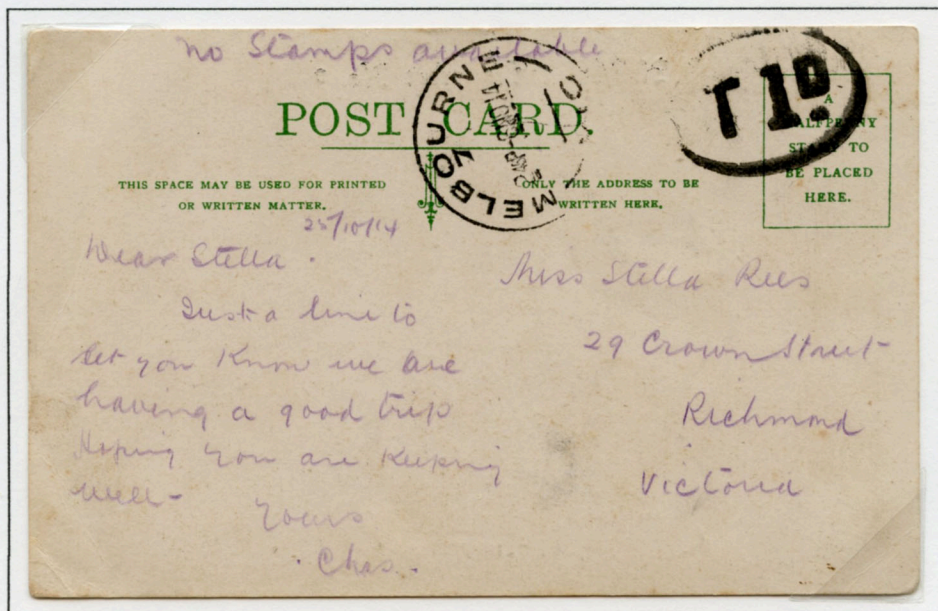 no Stamps available
POST CARD.
MELBOURNE
T 1D.
A
HALFPENNY
STAMP TO
BE PLACED
HERE.
THIS SPACE MAY BE USED FOR PRINTED
OR WRITTEN MATTER.
ONLY THE ADDRESS TO BE
WRITTEN HERE.
25/10/14
Dear Stella.
Just a line to
let you know we are
having a good trip
Hoping you are keeping
well-
Yours
Chas.
Miss Stella Rees
29 Crown Street
Richmond
Victoria